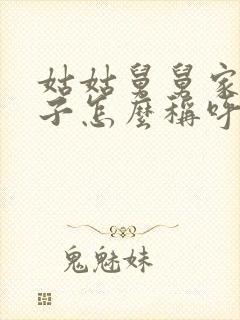 姑姑舅舅家
子怎麼稱呼
鬼魅妹